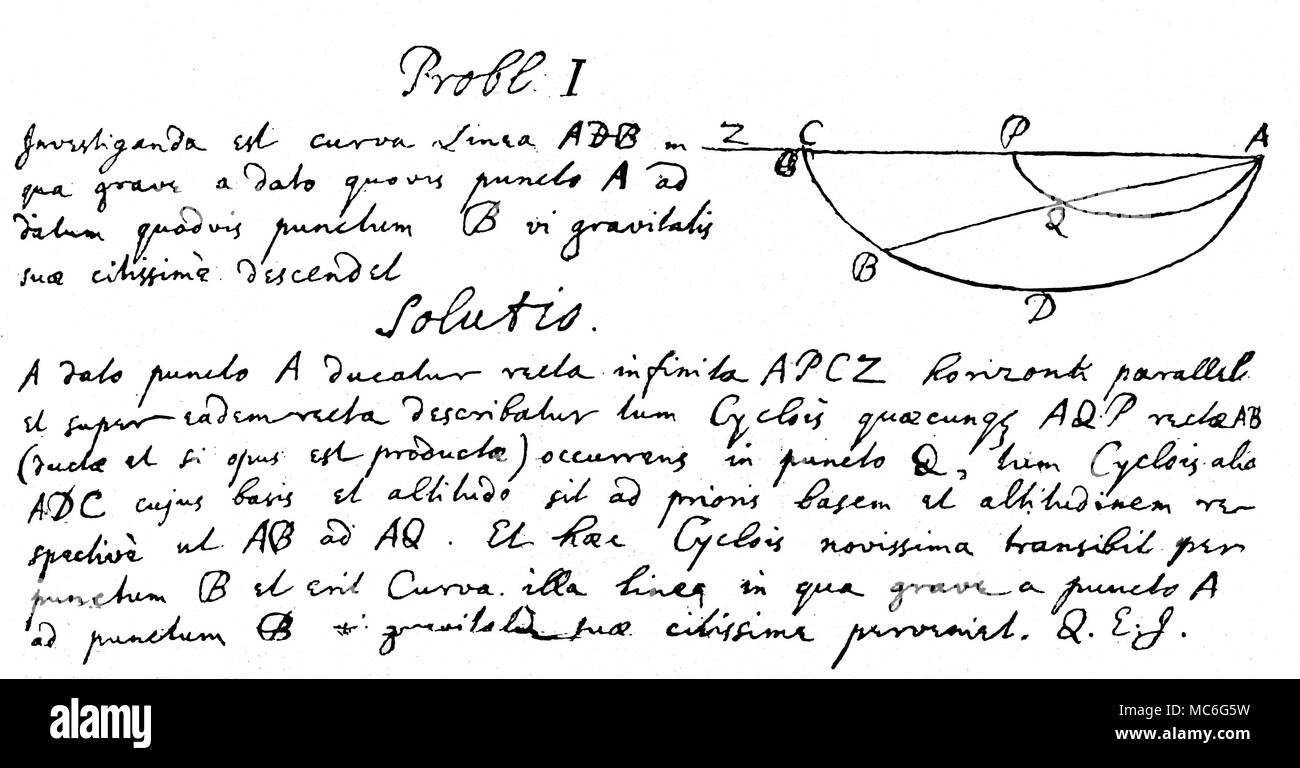 Probl. I
Investiganda est curva Linea ADB in
qua grave a dato quovis puncto A ad
datum quodvis punctum B vi gravitatis
suæ citissimè descendet
Z C P A
Q
B
D
Solutio.
A dato puncto A ducatur recta infinita APCZ horizonti parallel
et super eadem recta describatur tum Cyclois quæcunqꝫ AQP rectæ AB
(ductæ et si opus est productæ) occurrens in puncto Q, tum Cyclois alia
ADC cujus basis et altitudo sit ad prioris basem et altitudinem re-
spectivè ut AB ad AQ. Et hæc Cyclois novissima transibit per
punctum B et erit Curva illa linea in qua grave a puncto A
ad punctum B vi gravitatis suæ citissime perveniet. Q.E.J.
alamy
a
alamy
Image ID: MC6G5W
www.alamy.com